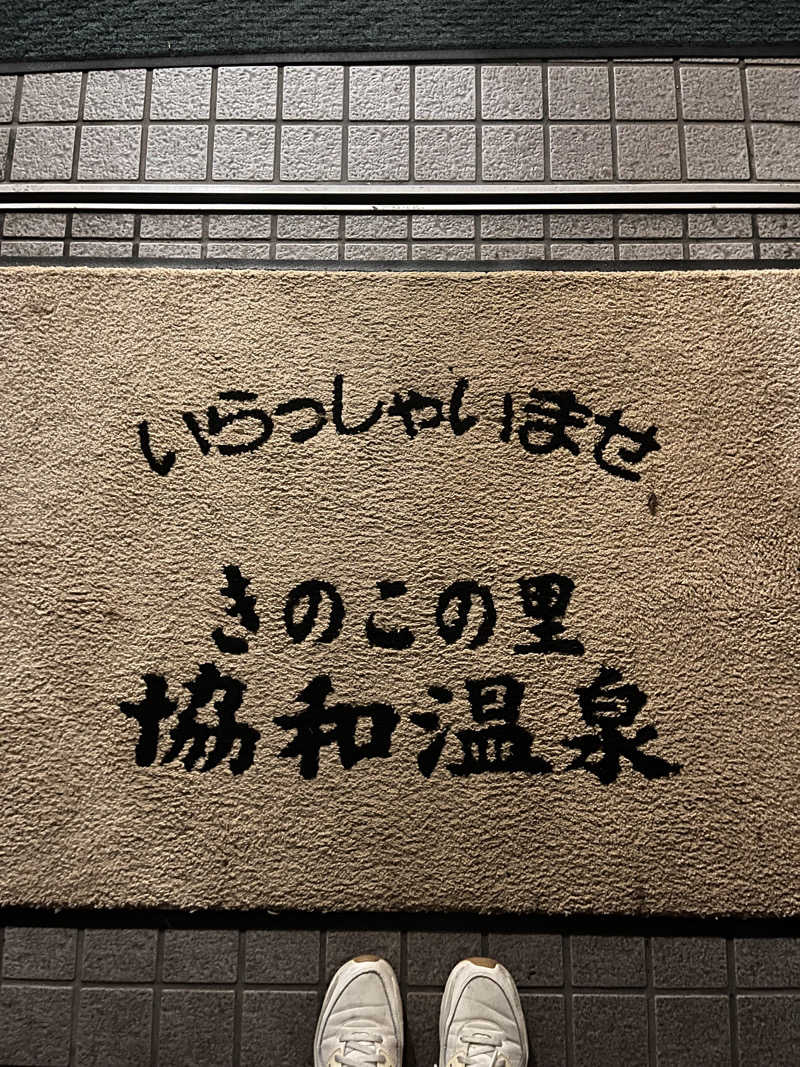 いらっしゃいませ
きのこの里
協和温泉